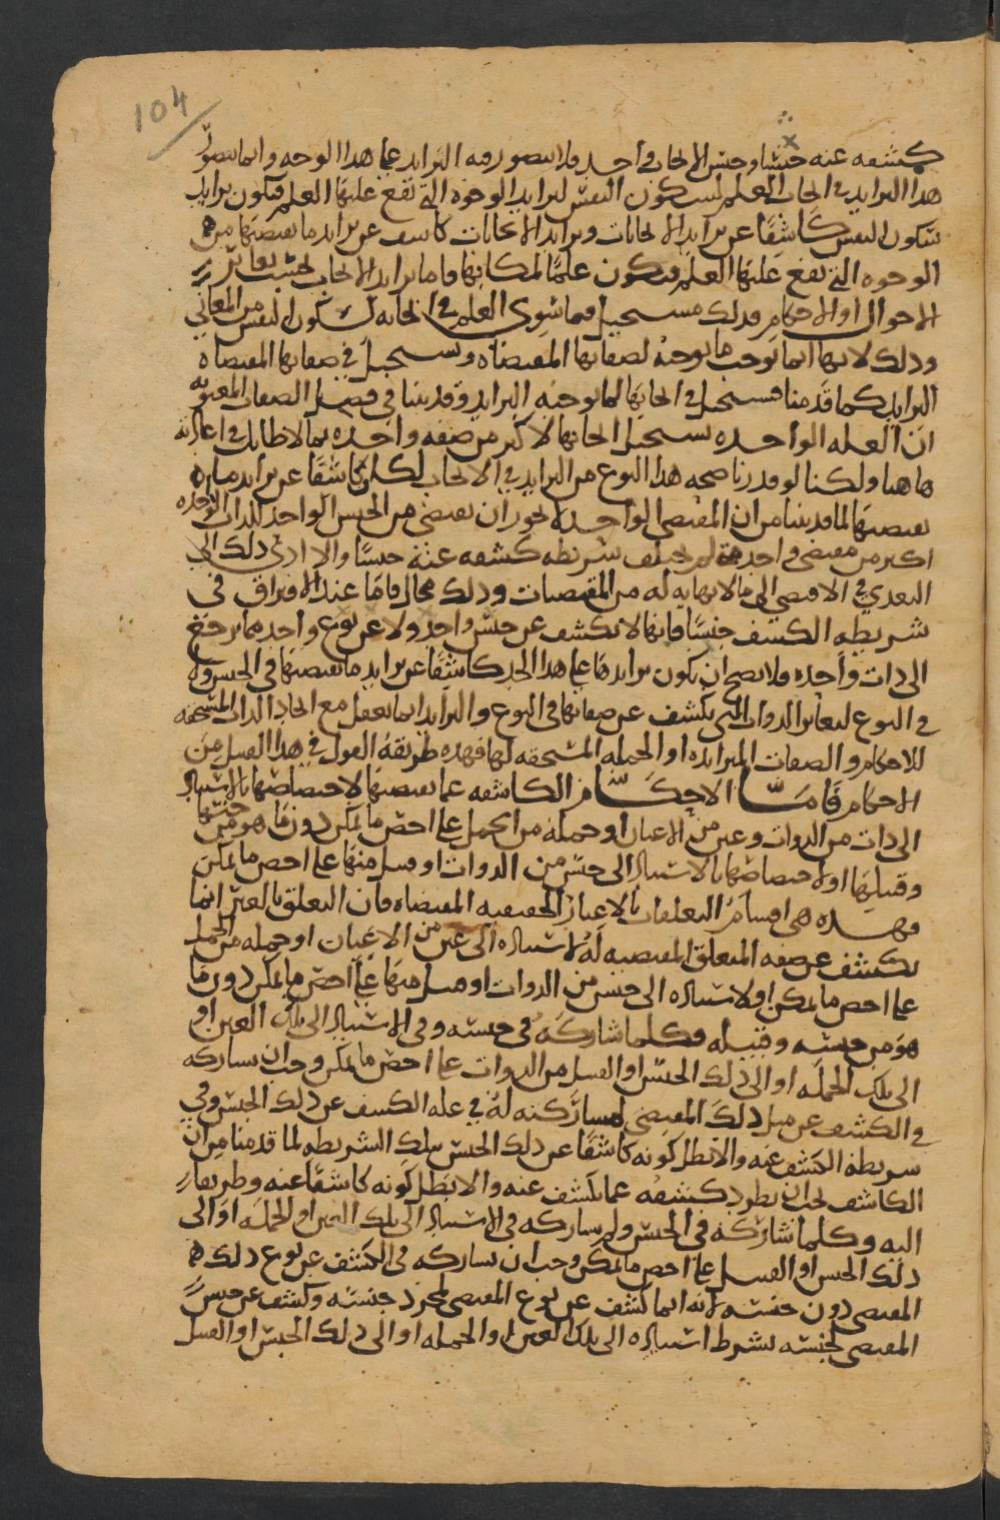 104
كشفه عنه جنسًا وجنس الالحاق واحد ولا يتصور فيه التزايد على هذا الوجه وانما يتصور
هذا التزايد في ايجاب العلم لسكون النفس لتزايد الوجوه التي تقع عليها العلم فيكون تزايد
سكون النفس كاشفًا عن تزايد الايجابات وتزايد الايجابات كاشف عن تزايد ما يقتضيها من
الوجوه التي تقع عليها العلم فيكون علمًا لمكانها فاما تزايد الايجاب بحسب تغاير
الاحوال او الاحكام فذلك مستحيل فيما سوى العلم في ايجابه لسكون النفس من المعاني
وذلك لانها انما توجب ما توجبه لصفاتها المقتضاه ويستحيل في صفاتها المقتضاه
التزايد كما قدمنا فيستحيل في ايجابها لما توجبه التزايد وقد بينا في فصل الصفات المعنويه
ان العله الواحده يستحيل ايجابها لاكثر من صفه واحده بما لا طايل في اعادته
هاهنا ولكنا لو قدرنا صحه هذا النوع من التزايد في الايجاب لكان كاشفًا عن تزايد ما
يقتضيها لما قدمنا من ان المقتضي الواحد لا يجوز ان يقتضي من الجنس الواحد للذات الواحده
اكثر من مقتضى واحد متى لم يختلف شريطه كشفه عنه جنسًا والا ادى ذلك الى
التعدي في الاقتضا الى ما لا نهايه له من المقتضيات وذلك محال فاما عند الافتراق في
شريطه الكشف جنسًا فانها لا تكشف عن جنس واحد ولا عن نوع واحد مما يرجع
الى ذات واحده ولا يصح ان يكون تزايدها على هذا الحد كاشفًا عن تزايد ما يقتضيها في الجنس ولا
في النوع لتغاير الذوات التي تكشف عن صفاتها في النوع والتزايد انما يعقل مع اتحاد الذات المستحقه
للاحكام والصفات المتزايده او الجمله المستحقه لها فهذه طريقه القول في هذا القبيل من
الاحكام فاما الاحكام الكاشفه عما يقتضيها لاختصاصها بالاستناد
الى ذات من الذوات وعين من الاعيان او جمله من الجمل على اخص ما يمكن دون ما هو من جنسها
وقبيلها او لاختصاصها بالاستناد الى جنس من الذوات او قبيل منها على اخص ما يمكن
فهذه هي اقسام التعلقات بالاعيان الحقيقيه المقتضاه فان التعلق بالعين انما
يكشف عن صفه المتعلق المقتضيه له لاستناده الى عين من الاعيان او جمله من الجمل
على اخص ما يمكن او لاستناده الى جنس من الذوات او قبيل منها على اخص ما يمكن دون ما
هو من جنسه وقبيله فكلما شاركه في جنسه وفي الاستناد الى تلك العين او
الى تلك الجمله او الى ذلك الجنس او القبيل من الذوات على اخص ما يمكن وجب ان يشاركه
في الكشف عن مثل ذلك المقتضي لمشاركته له في عله الكشف عن ذلك الجنس وفي
شريطه الكشف عنه والا بطل كونه كاشفًا عن ذلك الجنس بتلك الشريطه لما قدمنا من ان
الكاشف يجب ان يطرد كشفه عما يكشف عنه والا بطل كونه كاشفًا عنه وطريقًا
اليه وكلما شاركه في الجنس ولم يشاركه في الاستناد الى تلك العين او الجمله او الى
ذلك الجنس او القبيل على اخص ما يمكن وجب ان يشاركه في الكشف عن نوع ذلك
المقتضي دون جنسه لانه انما كشف عن نوع المقتضي لمجرد جنسه وكشف عن جنس
المقتضي لجنسه بشرط استناده الى تلك العين او الجمله او الى ذلك الجنس او القبيل